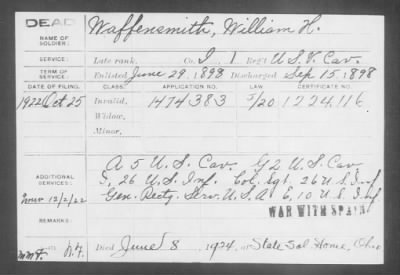 DEAD
NAME OF SOLDIER: Waffensmith, William H.
SERVICE: Late rank, Co. I, 1 Reg't U.S.V. Cav.
TERM OF SERVICE: Enlisted June 29, 1898 Discharged Sep 15, 1898
DATE OF FILING. CLASS. APPLICATION NO. LAW CERTIFICATE NO.
1922 Oct 25 Invalid, 1474,383 5/20 1224,116
Widow,
Minor,
A 5 U.S. Cav. G 2 U.S. Cav
ADDITIONAL SERVICES: I, 26 U.S. Inf. Col. Sgt. 26 U.S. Inf
12/2/22 Gen. Rectg. Serv. U.S.A. E, 10 U.S. Inf
WAR WITH SPAIN
REMARKS:
Died June 8, 1924, at State Sol. Home, Ohio